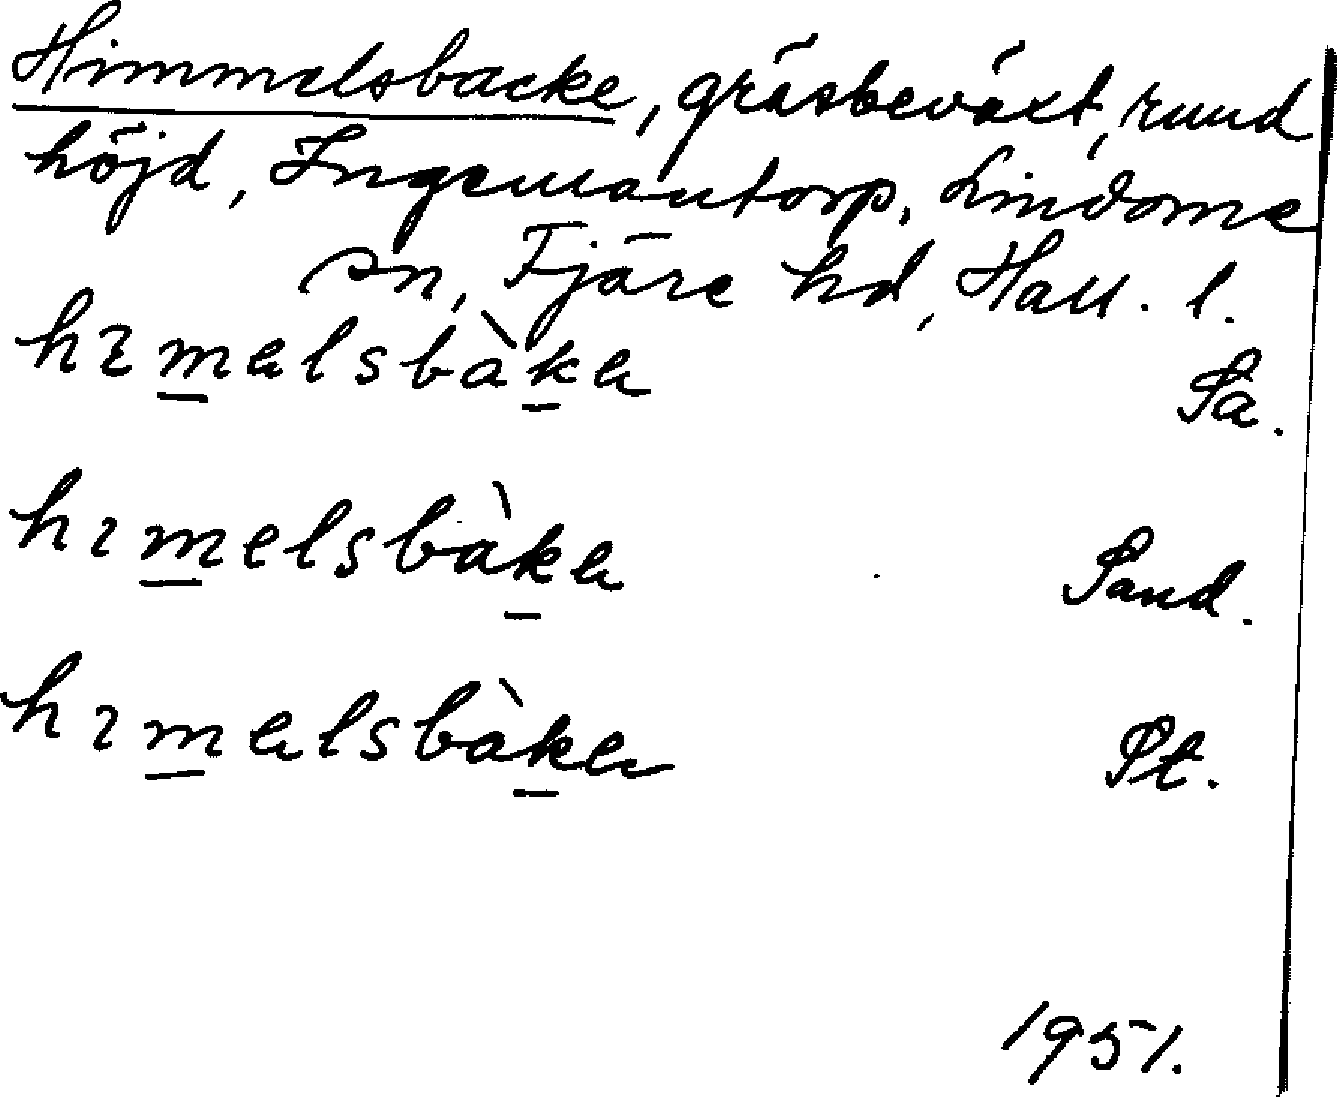 Himmelsbacke, gräsbeväxt, rund
höjd, Ingemantorp, Lindome
sn, Fjäre hd, Hall. l.
hımelsbàka Sa.
hımelsbàka Sand.
hımelsbàka Pt.
1951.